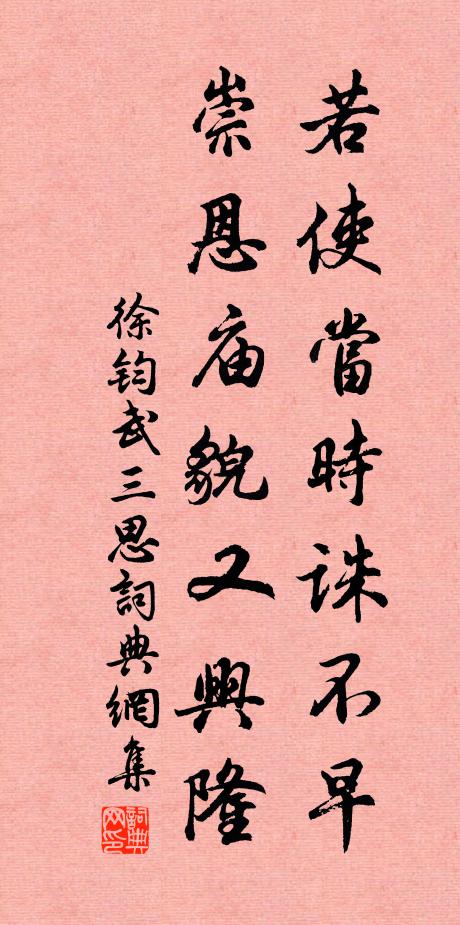 若使當時誅不早
崇恩庙貌又興隆
徐钧武三思詞典網集
詞典网印